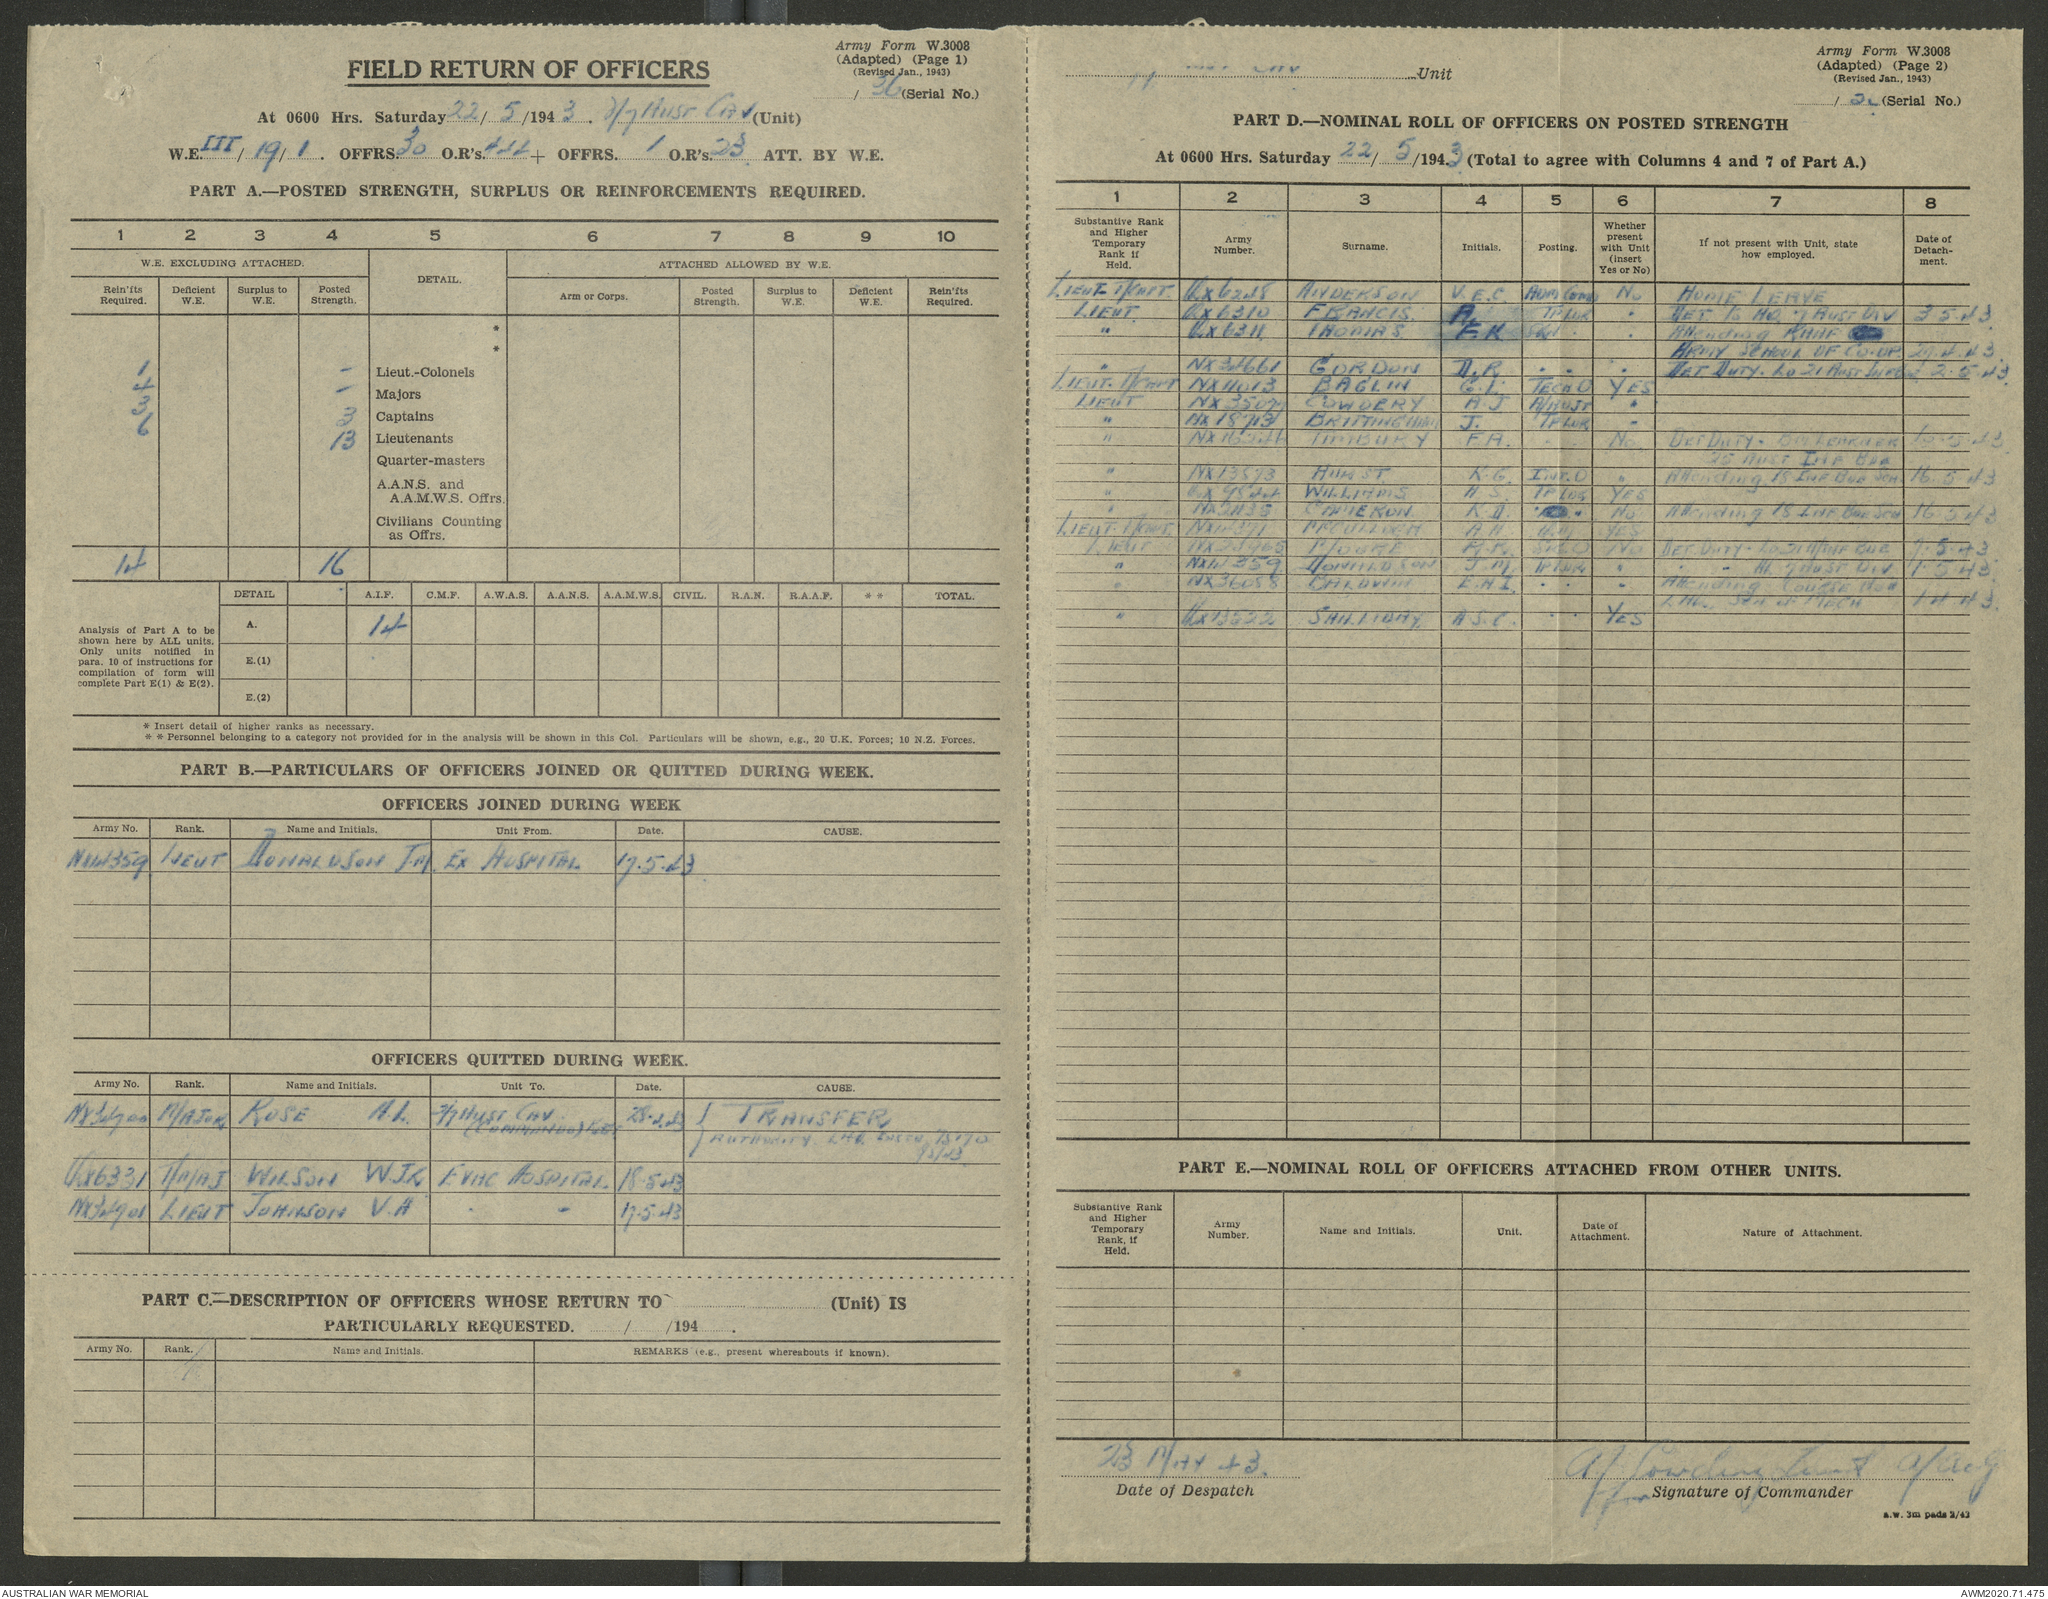 Army Form W.3008
(Adapted) (Page 1)
(Revised Jan., 1943)
/ 36 (Serial No.)
FIELD RETURN OF OFFICERS
At 0600 Hrs. Saturday 22/5/1943. 2/7 Aust Cav (Unit)
W.E. III/19/1. OFFRS. 30 O.R's. 444 + OFFRS. 1 O.R's. 23 ATT. BY W.E.
PART A.—POSTED STRENGTH, SURPLUS OR REINFORCEMENTS REQUIRED.
1 2 3 4 5 6 7 8 9 10
W.E. EXCLUDING ATTACHED. DETAIL. ATTACHED ALLOWED BY W.E.
Rein'fts Required. Deficient W.E. Surplus to W.E. Posted Strength. Arm or Corps. Posted Strength. Surplus to W.E. Deficient W.E. Rein'fts Required.
*
*
1 - Lieut.-Colonels
4 - Majors
3 3 Captains
6 13 Lieutenants
Quarter-masters
A.A.N.S. and
A.A.M.W.S. Offrs.
Civilians Counting
as Offrs.
14 16
Analysis of Part A to be shown here by ALL units. Only units notified in para. 10 of instructions for compilation of form will complete Part E(1) & E(2).
DETAIL A.I.F. C.M.F. A.W.A.S. A.A.N.S. A.A.M.W.S. CIVIL. R.A.N. R.A.A.F. * * TOTAL.
A. 14
E.(1)
E.(2)
* Insert detail of higher ranks as necessary.
* * Personnel belonging to a category not provided for in the analysis will be shown in this Col. Particulars will be shown, e.g., 20 U.K. Forces; 10 N.Z. Forces.
PART B.—PARTICULARS OF OFFICERS JOINED OR QUITTED DURING WEEK.
OFFICERS JOINED DURING WEEK
Army No. Rank. Name and Initials. Unit From. Date. CAUSE.
LIEUT DONALDSON J.M. EX HOSPITAL 17.5.43
OFFICERS QUITTED DURING WEEK.
Army No. Rank. Name and Initials. Unit To. Date. CAUSE.
NX34900 MAJOR ROSE 2/7 AUST CAV TRANSFER
(COMMANDO) AUTHORITY LHQ
QX6331 T/MAJ WILSON W.J.K EVAC HOSPITAL 18.5.43
LIEUT JOHNSON V.A " " 17.5.43
PART C.—DESCRIPTION OF OFFICERS WHOSE RETURN TO (Unit) IS
PARTICULARLY REQUESTED. / /194 .
Army No. Rank. Name and Initials. REMARKS (e.g., present whereabouts if known).
Army Form W.3008
(Adapted) (Page 2)
(Revised Jan., 1943)
Unit
/ (Serial No.)
PART D.—NOMINAL ROLL OF OFFICERS ON POSTED STRENGTH
At 0600 Hrs. Saturday 22/5/1943 (Total to agree with Columns 4 and 7 of Part A.)
1 2 3 4 5 6 7 8
Substantive Rank and Higher Temporary Rank if Held. Army Number. Surname. Initials. Posting. Whether present with Unit (insert Yes or No) If not present with Unit, state how employed. Date of Detach- ment.
LIEUT T/CAPT. QX6248 ANDERSON V.E.C. ADM COMD NO HOME LEAVE
LIEUT QX6310 FRANCIS A. TP LDR " DET 15 HQ 7 AUST DIV 3.5.43
" QX6311 THOMAS F.K " " Attending RAAF
ARMY SCHOOL OF CO-OP. 29.4.43
" NX34661 GORDON D.R. " " DET DUTY. LO 21 AUST INF BDE 2.5.43
LIEUT. T/CAPT NX11013 BAGLIN G.L. TECH O YES
LIEUT COWDERY A.J A/ADJT "
" BRITTINGHAM J. TP LDR "
" TIMBURY F.A. " NO DET DUTY -
25 AUST INF BDE
" NX13593 HURST K.G. INT. O " Attending 18 INF BDE SCH 16.5.43
" WILLIAMS H.S. TP LDR YES
" CAMERON K.A. " NO Attending 18 INF BDE SCH 16.5.43
LIEUT. T/CAPT. McCULLOCH A.H YES
LIEUT MOORE NO DET. DUTY - LO 21 A/INF BDE 7.5.43
" DONALDSON J.M. TP LDR " " " HQ 7 AUST DIV 1.5.43
" NX36058 BALDWIN E.A.I. " " Attending COURSE
" QX13522 SHILLIDAY A.S.C. " YES
PART E.—NOMINAL ROLL OF OFFICERS ATTACHED FROM OTHER UNITS.
Substantive Rank and Higher Temporary Rank, if Held. Army Number. Name and Initials. Unit. Date of Attachment. Nature of Attachment.
23 MAY 43. AJ Cowdery Lieut A/Adj
Date of Despatch for Signature of Commander
a.w. 3m pads 2/43
AUSTRALIAN WAR MEMORIAL AWM2020.71.475